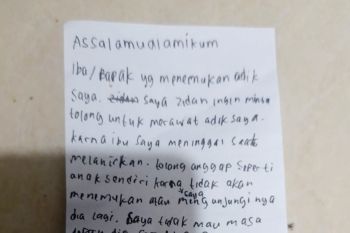 Assalamualamikum
Iba/Bapak yg menemukan adik
saya. zidan saya zidan ingin minta
tolong untuk merawat adik saya.
karna ibu saya meninggal saat
melahirkan. tolong anggap seperti
anak sendiri karna tidak akan
saya
menemukan atau mengunjungi nya
dia lagi. saya tidak mau masa